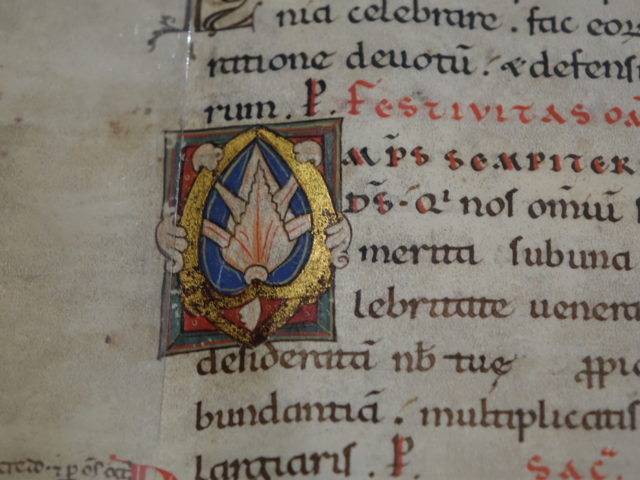 nia celebrare . fac eoꝝ
ratione deuotū . & defens
rum . P. FESTIVITAS O
MPS SEMPITER
DS . Qı nos omīū
merita sub una
lebritate uenera
desideratā nb̄ tuę ꝓpi
bundantiā . multiplicatis
largiaris . P. SAC